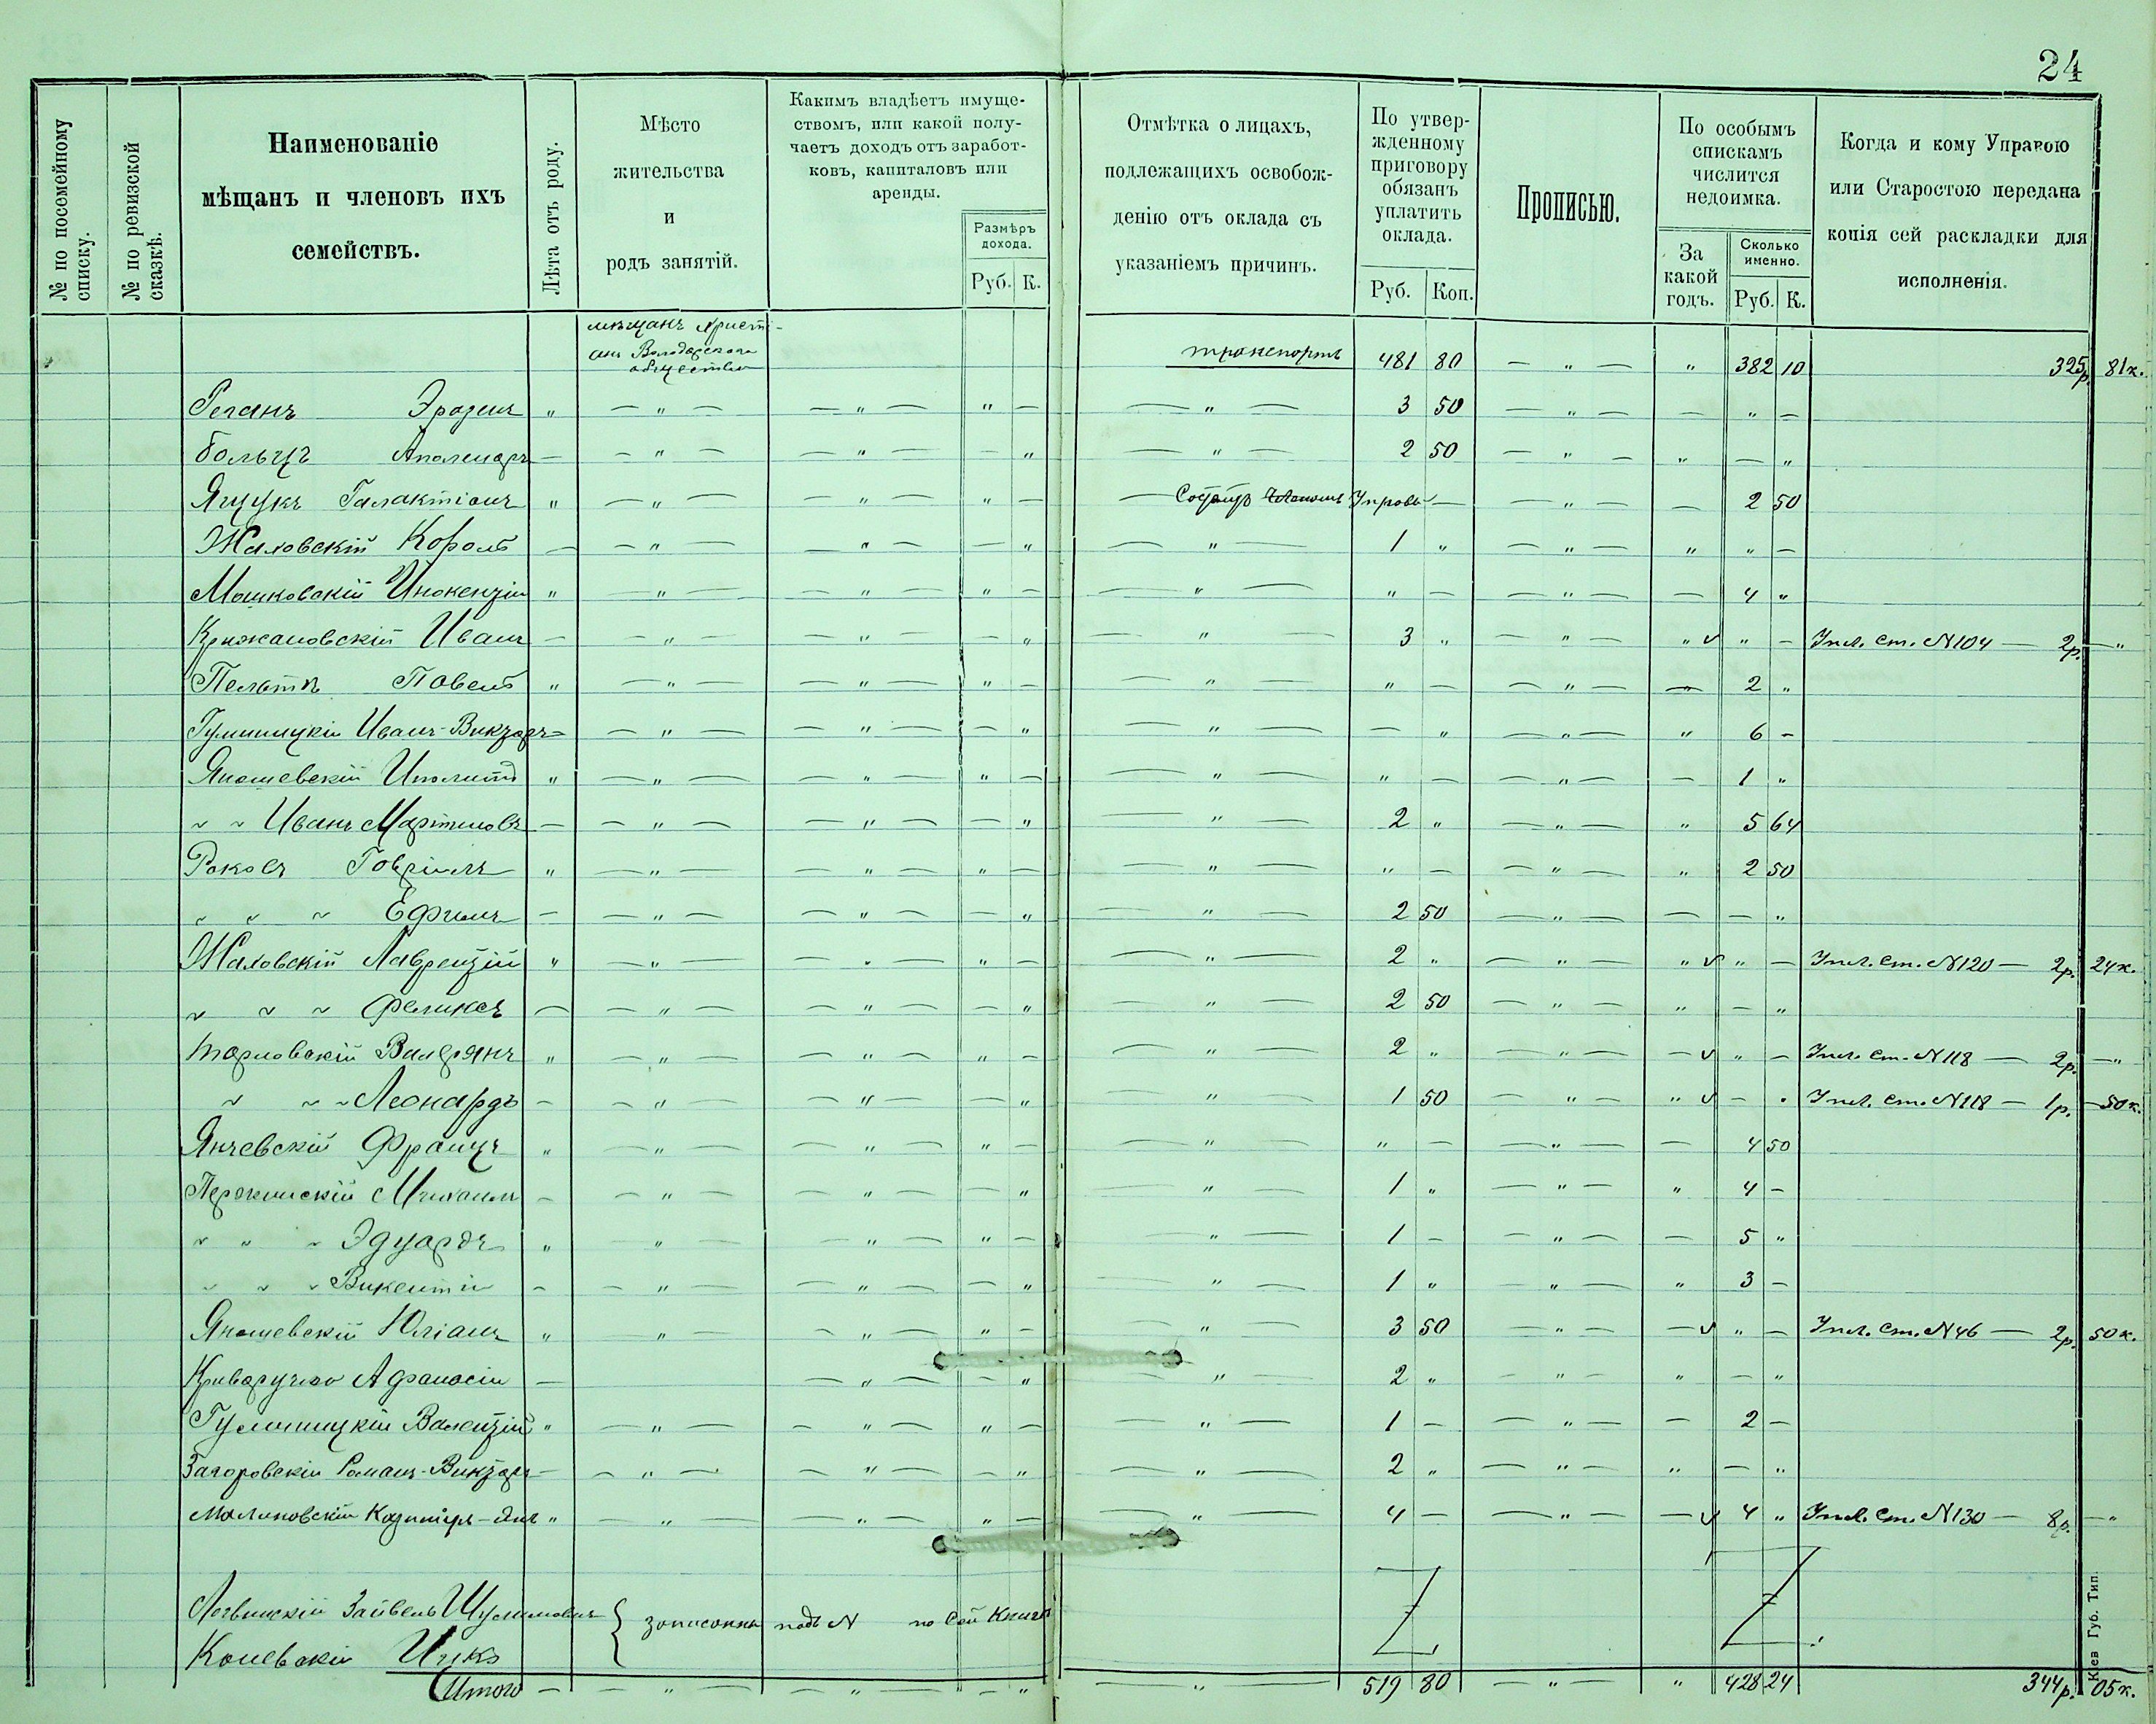 24
№ по посемейному списку.
№ по ревизской сказкѣ.
Наименованіе
мѣщанъ и членовъ ихъ
семействъ.
Лѣта отъ роду.
Мѣсто
жительства
и
родъ занятій.
Какимъ владѣетъ имуще-
ствомъ, или какой полу-
чаетъ доходъ отъ заработ-
ковъ, капиталовъ или
аренды.
Размѣръ
дохода.
Руб. К.
Отмѣтка о лицахъ,
подлежащихъ освобож-
денію отъ оклада съ
указаніемъ причинъ.
По утвер-
жденному
приговору
обязанъ
уплатить
оклада.
Руб. Коп.
Прописью.
По особымъ
спискамъ
числится
недоимка.
За
какой
годъ.
Сколько
именно.
Руб. К.
Когда и кому Управою
или Старостою передана
копія сей раскладки для
исполненія.
мѣщанъ Христі-
анъ Володарскаго
общества
транспортъ 481 80 — " — " 382 10 325р. 81к.
" — " — — " — " — — " — 3 50 — " — — " —
— — " — — " — — " — " — 2 50 — " — " — "
Ящукъ Галактіонъ " — " — — " — " — — Управы — — " — — 2 50
Жаховскій Король — — " — — " — — " — " — 1 " — " — " " —
Мошковскій Инокензій " — " — — " — " — — " — " — — " — — 4 "
Крижановскій Иванъ — — " — — " — — " — " — 3 " — " — " v " — Упл. Ст. N 104 — 2р. — "
Павелъ " — " — — " — " — — " — " — — " — — 2 "
Гулиницкій Иванъ-Викторъ — — " — — " — — " — " — — " — " — " 6 —
Яношевскій Иполитъ " — " — — " — " — — " — " — — " — — 1 "
" " Иванъ Мартиновъ — — " — — " — — " — " — 2 " — " — " 5 64
Раковъ Говріилъ " — " — — " — " — — " — " — — " — " 2 50
" " " Ефимъ — — " — — " — — " — " — 2 50 — " — — — "
Жаховскій Лаврензій " — " — — " — " — — " — 2 " — " — " v " — Упл. Ст. N 120 — 2р. 24к.
" " " Феликсъ — — " — — " — — " — " — 2 50 — " — " — "
Тарновскій Валерянъ " — " — — " — " — — " — 2 " — " — — v " — Упл. Ст. N 118 — 2р. — "
" " " Леонардъ — — " — — " — — " — " — 1 50 — " — " v — " Упл. Ст. N 118 — 1р. — 50к.
Янчевскій Францъ " — " — — " — " — — " — " — — " — — 4 50
Михаилъ — — " — — " — — " — " — 1 " — " — " 4 —
" " " Эдуардъ " — " — — " — " — — " — 1 — — " — — 5 "
" " " Викентій — — " — — " — — " — " — 1 " — " — " 3 —
Яношевскій Юліанъ " — " — — " — " — — " — 3 50 — " — — v " — Упл. Ст. N 46 — 2р. 50к.
Криворучко Афанасій — — " — — " — " — 2 " — " — " — "
Гулиницкій Валензій " — " — — " — " — — " — 1 — — " — — 2 —
Загоровскій Романъ-Викторъ — — " — — " — — " — " — 2 " — " — " — "
Малиновскій Казиміръ-Янъ " — " — — " — " — — " — 4 — — " — — v 4 " Упл. Ст. N 130 — 8р. — "
Зайвель Шулимовичъ
записанны подъ N по Сей Книгѣ
Коневскій Ицко
Итого — — " — — " — — " — " — 519 80 — " — " 428 24 344р. 05к.
Кіев Губ. Тип.